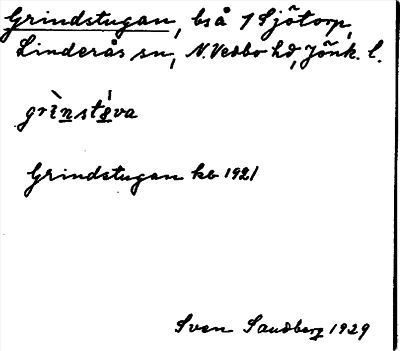 Grindstugan, bså 1 Sjötorp,
Linderås sn, N. Vedbo hd, Jönk. l.
Grindstugan kb 1921
Sven Sandberg 1929